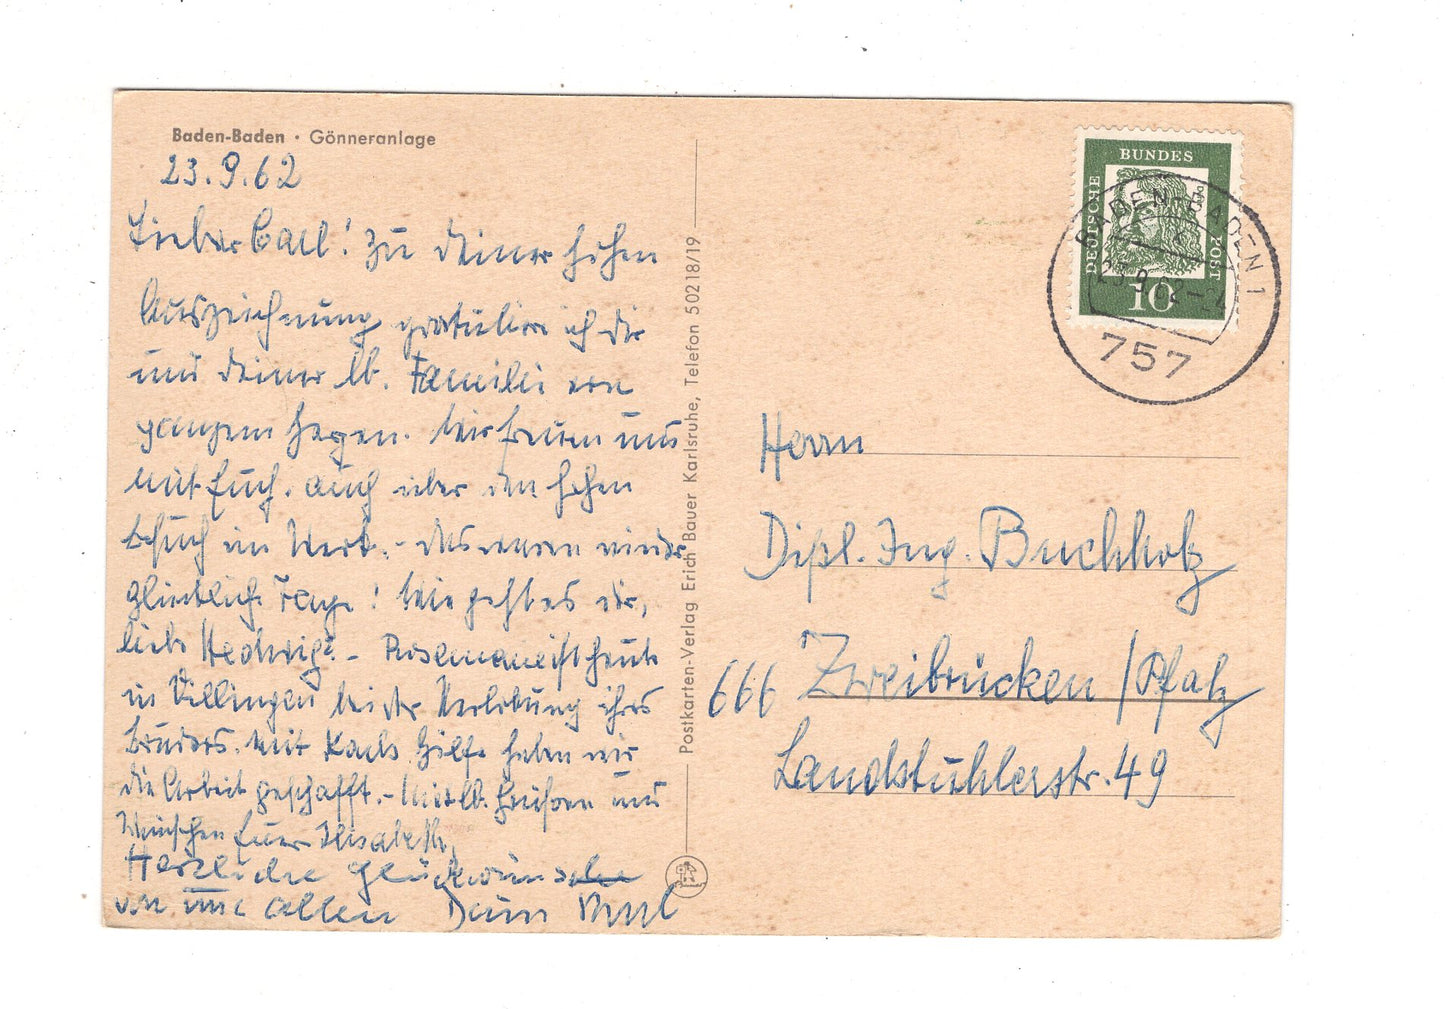 Baden-Baden · Gönneranlage
23.9.62
Lieber Carl! Zu Deiner hohen
Auszeichnung gratuliere ich Dir
und Deiner lb. Familie von
ganzem Herzen. Wir freuen uns
mit Euch, auch über den hohen
Besuch im Werk. - Das waren wieder
glückliche Tage! Wie geht es Dir,
liebe Hedwig? - Rosemarie ist heute
in Villingen bei der Verlobung ihres
Bruders. Mit Karls Hilfe haben wir
die Arbeit geschafft. - Mit lb. Grüssen und
Wünschen Eure Elisabeth.
Herzliche Glückwünsche
von uns allen Dein
Postkarten-Verlag Erich Bauer Karlsruhe, Telefon 50218/19
DEUTSCHE
BUNDES
POST
10
BADEN-BADEN 1
23.9.62
757
Herrn
Dipl. Ing. Buchholz
666 Zweibrücken / Pfalz
Landstuhlerstr. 49